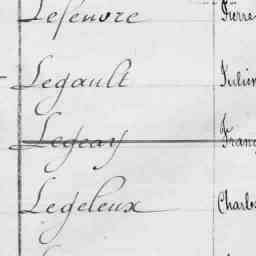 Lefenvre Pierre
Legault Julien
Legeay Franç
Legeleux Charles